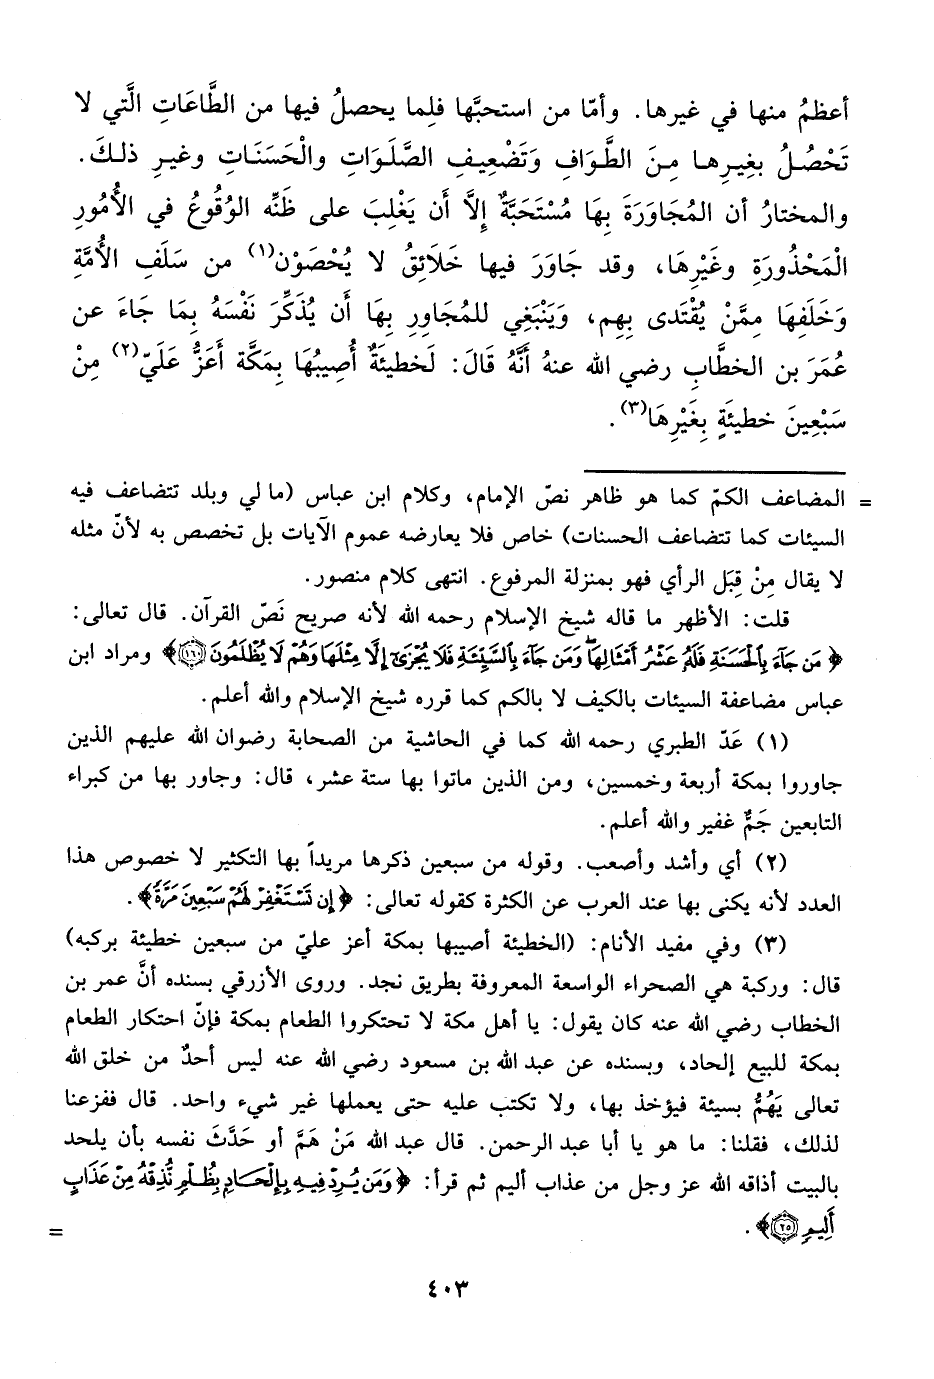 أعظمُ منها في غيرها. وأمّا من استحبَّها فلِما يحصلُ فيها من الطَّاعَاتِ الَّتي لا
تَحْصُلُ بغيرِها مِنَ الطَّوَافِ وَتَضْعِيفِ الصَّلَوَاتِ والْحَسَنَاتِ وغيرِ ذلكَ.
والمختارُ أن المُجَاوَرَةَ بِهَا مُسْتَحَبَّةٌ إلاَّ أن يَغْلِبَ على ظَنِّه الوُقُوعُ في الأُمُورِ
الْمَحْذُورَةِ وغَيْرِهَا، وقد جَاوَرَ فيها خَلَائِقُ لا يُحْصَوْن(١) من سَلَفِ الأُمَّةِ
وَخَلَفِهَا مِمَّنْ يُقْتَدى بِهِم، وَيَنْبَغِي للمُجَاوِرِ بِهَا أن يُذَكِّرَ نَفْسَهُ بِمَا جَاءَ عن
عُمَرَ بن الخطَّابِ رضي الله عنهُ أنَّهُ قَالَ: لَخطيئَةٌ أُصِيبُهَا بِمَكَّة أَعَزُّ عَلَيّ(٢) مِنْ
سَبْعِينَ خطيئَةٍ بِغَيْرِهَا(٣).
= المضاعف الكمّ كما هو ظاهر نصّ الإمام، وكلام ابن عباس (ما لي وبلد تتضاعف فيه
السيئات كما تتضاعف الحسنات) خاص فلا يعارضه عموم الآيات بل تخصص به لأنّ مثله
لا يقال مِنْ قِبَل الرأي فهو بمنزلة المرفوع. انتهى كلام منصور.
قلت: الأظهر ما قاله شيخ الإسلام رحمه الله لأنه صريح نَصّ القرآن. قال تعالى:
﴿مَن جَآءَ بِٱلْحَسَنَةِ فَلَهُۥ عَشْرُ أَمْثَالِهَا ۖ وَمَن جَآءَ بِٱلسَّيِّئَةِ فَلَا يُجْزَىٰٓ إِلَّا مِثْلَهَا وَهُمْ لَا يُظْلَمُونَ ١٦٠﴾ ومراد ابن
عباس مضاعفة السيئات بالكيف لا بالكم كما قرره شيخ الإسلام والله أعلم.
(١) عَدّ الطبري رحمه الله كما في الحاشية من الصحابة رضوان الله عليهم الذين
جاوروا بمكة أربعة وخمسين، ومن الذين ماتوا بها ستة عشر، قال: وجاور بها من كبراء
التابعين جَمٌّ غفير والله أعلم.
(٢) أي وأشد وأصعب. وقوله من سبعين ذكرها مريداً بها التكثير لا خصوص هذا
العدد لأنه يكنى بها عند العرب عن الكثرة كقوله تعالى: ﴿إِن تَسْتَغْفِرْ لَهُمْ سَبْعِينَ مَرَّةً﴾.
(٣) وفي مفيد الأنام: (الخطيئة أصيبها بمكة أعز عليّ من سبعين خطيئة بركبه)
قال: وركبة هي الصحراء الواسعة المعروفة بطريق نجد. وروى الأزرقي بسنده أنَّ عمر بن
الخطاب رضي الله عنه كان يقول: يا أهل مكة لا تحتكروا الطعام بمكة فإنّ احتكار الطعام
بمكة للبيع إلحاد، وبسنده عن عبد الله بن مسعود رضي الله عنه ليس أحدٌ من خلق الله
تعالى يَهُمُّ بسيئة فيؤخذ بها، ولا تكتب عليه حتى يعملها غير شيء واحد. قال ففزعنا
لذلك، فقلنا: ما هو يا أبا عبد الرحمن. قال عبد الله مَنْ هَمَّ أو حَدَّثَ نفسه بأن يلحد
بالبيت أذاقه الله عز وجل من عذاب أليم ثم قرأ: ﴿وَمَن يُرِدْ فِيهِ بِإِلْحَادٍ بِظُلْمٍ نُّذِقْهُ مِنْ عَذَابٍ
أَلِيمٍ ٢٥﴾. =
٤٠٣